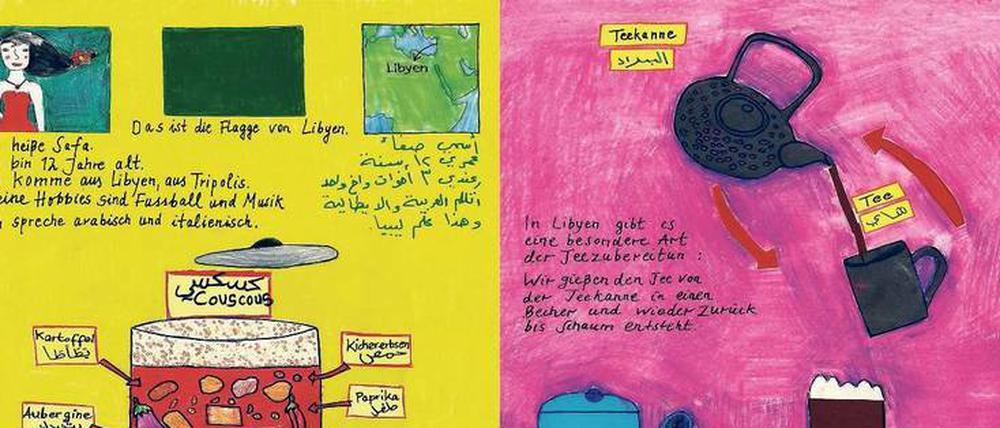 Das ist die Flagge von Libyen.
Libyen
heiße Safa.
bin 12 Jahre alt.
komme aus Libyen, aus Tripolis.
eine Hobbies sind Fussball und Musik
spreche arabisch und italienisch.
أسمي صفاء
عمري ١٢ سنة
وهذا علم ليبيا.
كسكسي
Couscous
Kartoffel
Kichererbsen
حمص
Paprika
فلفل
Aubergine
Teekanne
Tee
شاهي
In Libyen gibt es
eine besondere Art
der Teezubereitun :
Wir gießen den Tee von
der Teekanne in einen
Becher und wieder zurück
bis Schaum entsteht.